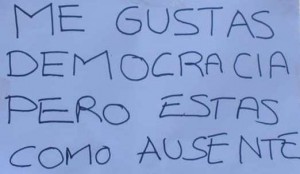 ME GUSTAS
DEMOCRACIA
PERO ESTAS
COMO AUSENTE